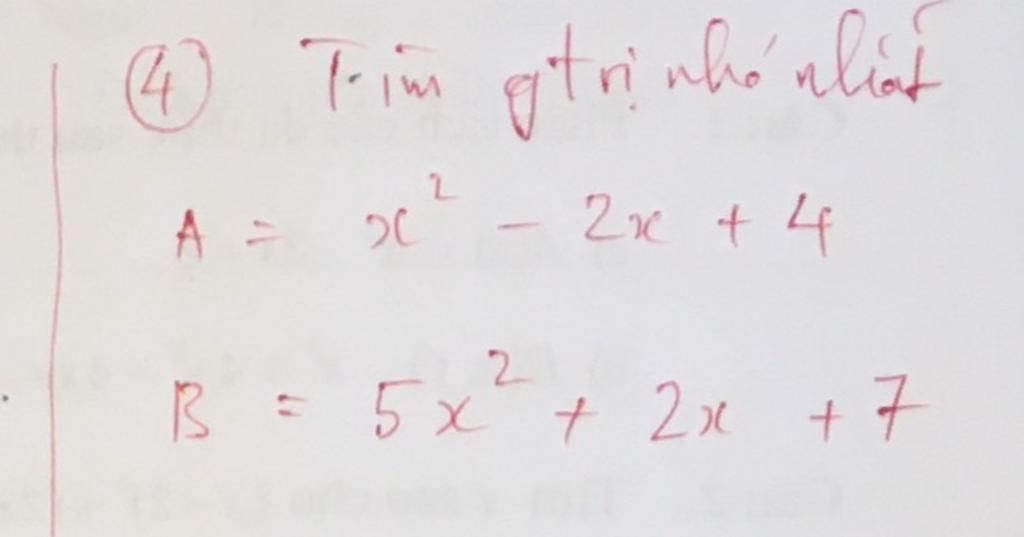 ④ Tìm gtrị nhỏ nhất
A = x² - 2x + 4
B = 5x² + 2x + 7